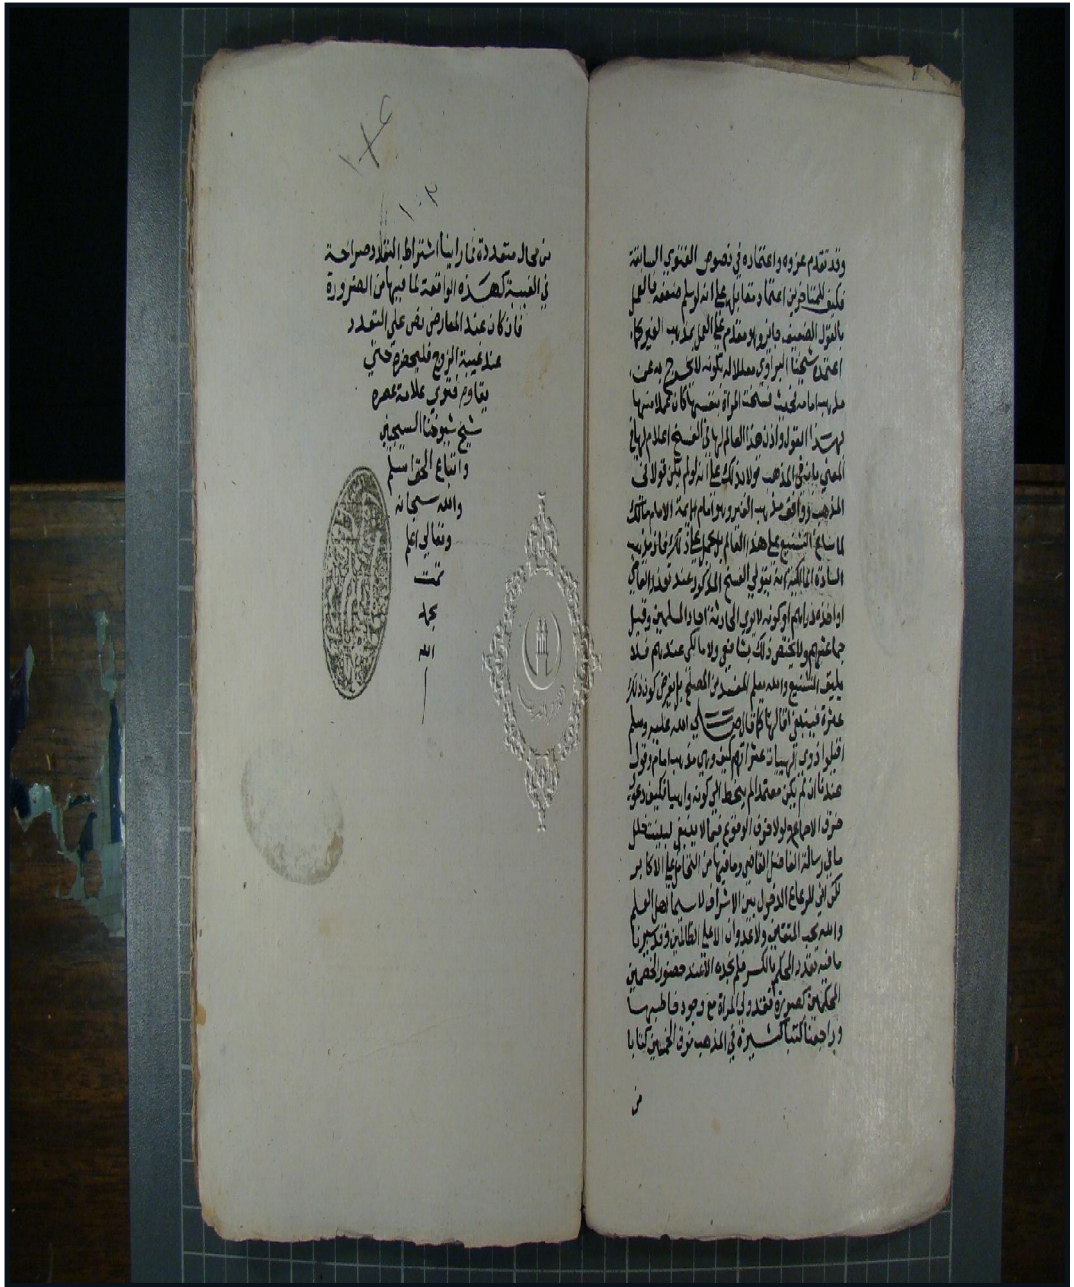 وقد تقدم عزوه واعتماده في نصوص الفتوي السابقة
فكيف للمتاخرين اعتماد مقابله علي انه لو سلم ضعفه فالعمل
بالقول الضعيف جائز وهو مقدم علي العمل بمذهب الغير كما
اعتمده شيخنا البراوي معللا له بكونه لا يخرج به عن
مذهب امامه فحيث فسخت المراة بنفسها كان عملا منها
بهذا القول واذن هذا العالم لها في الفسخ اعلام لها في
المعني بان في المذهب قولا بذلك علي انه لو لم يكن قولا في
المذهب ووافق مذهب الغير وهو امام الائمة الامام مالك
لما ساغ التشنيع علي هذا العالم
السادة المالكية انه يتولي الفسخ المذكور عند تعذر القاضي
او اخذه دراهم او كونه لا يري الحادثة احاد المسلمين وقيل
جماعتهم ولا يختص ذلك بشافعي ولا مالكي عندهم فلا
يليق التشنيع والله يعلم المفسد من المصلح بل بفرض كون ذلك
عثرة فينبغي اقالتها كما قال صلي الله عليه وسلم
اقيلوا ذوي الهيئات عثراتهم كيف وهي مذهب امام وقول
عندنا ان لم يكن معتمدا لم ينحط الي كونه واهيا فكيف دعوي
خرق الاجماع ولولا خوف الوقوع فيما لا ينبغي لبينت خلل
ما في رسالة الفاضل القاضي وما فيها من التحامل علي الاكابر
لكن اني للرعاع الدخول بين الاشراف لا سيما اهل العلم
والله يحب المتقين ولا عدوان الا علي الظالمين وقد سبرنا
ما فيه تعدد المحكم بالكسر فلم نجده الا عند حضور الخصمين
المحكمين كصورة فقد ولي المراة مع وجود خاطبها
وراجعنا كتبا كثيرة في المذهب فوق الخمسين كتابا
من
١٠٢
من محاله متعددة فما راينا اشتراط التعدد صراحة
في الغيبة كهذه الواقعة لما فيها من الضرورة
فان كان عند المعارض نص علي التعدد
عند غيبة الزوج فليحضره حتي
يقاوم فتوي علامة عصره
شيخ شيوخنا السجيني
واتباع الحق اسلم
والله سبحانه
وتعالي اعلم
تمت
بحمد
الله